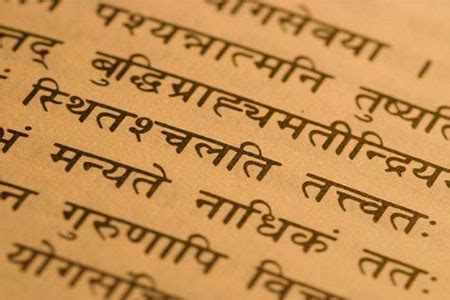 योगसेवया ।
पश्यन्नात्मनि तुष्यति
तद् बुद्धिग्राह्यमतीन्द्रिय
स्थितश्चलति तत्त्वतः
मन्यते नाधिकं ततः
न गुरुणापि